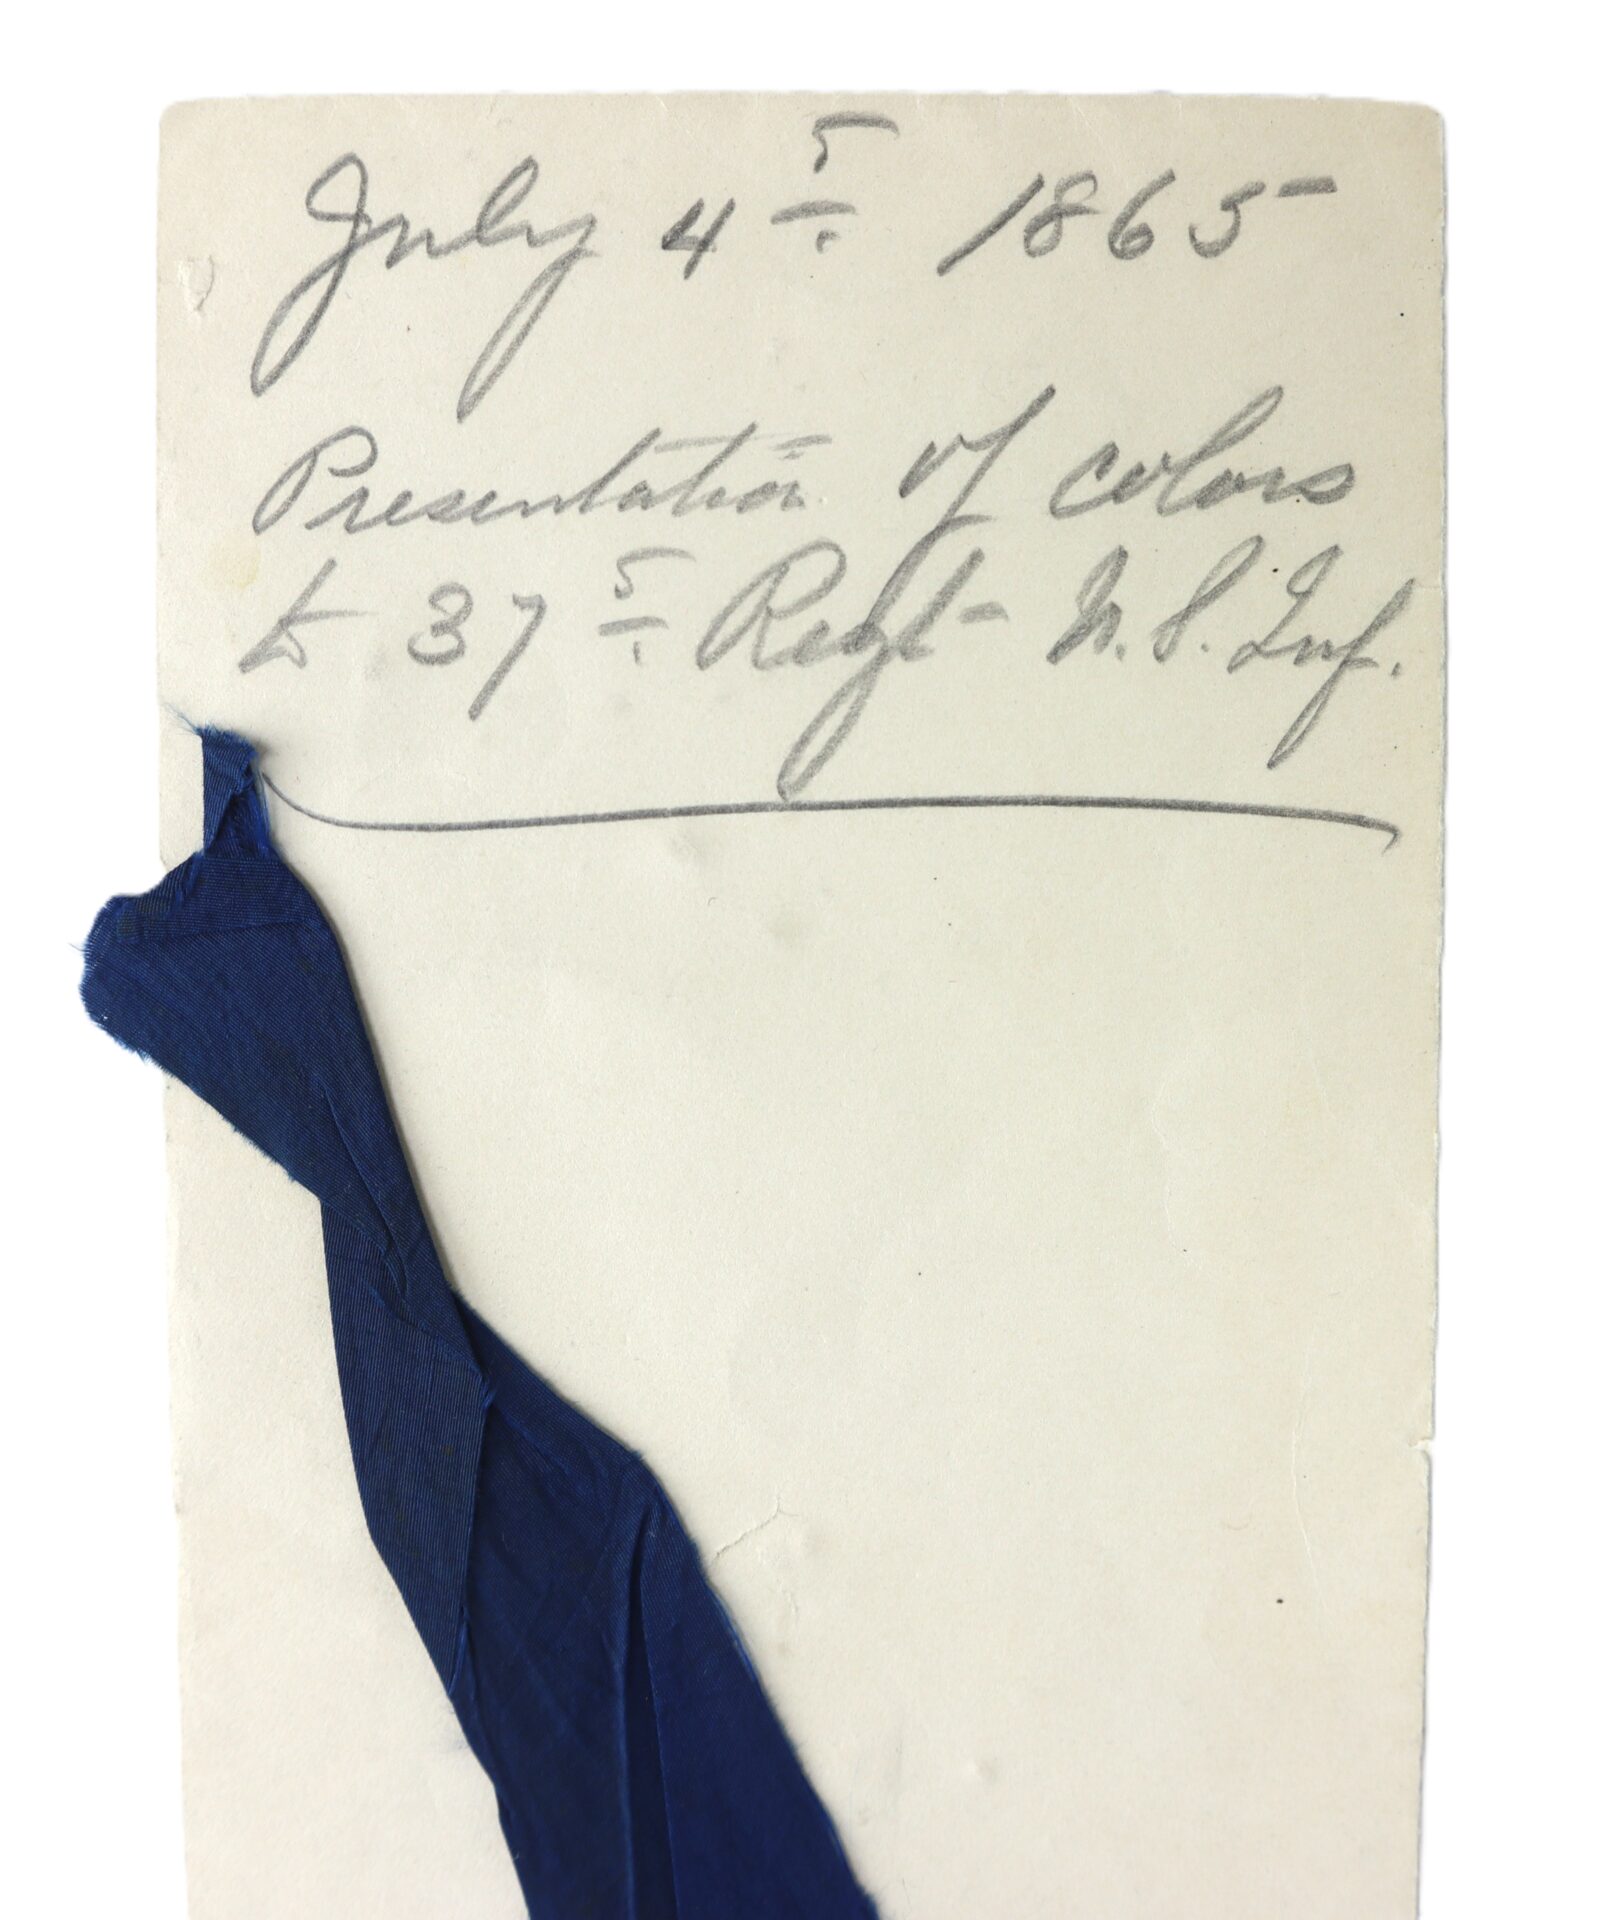 July 4th 1865
Presentation of colors
to 37th Regt U.S. Inf.